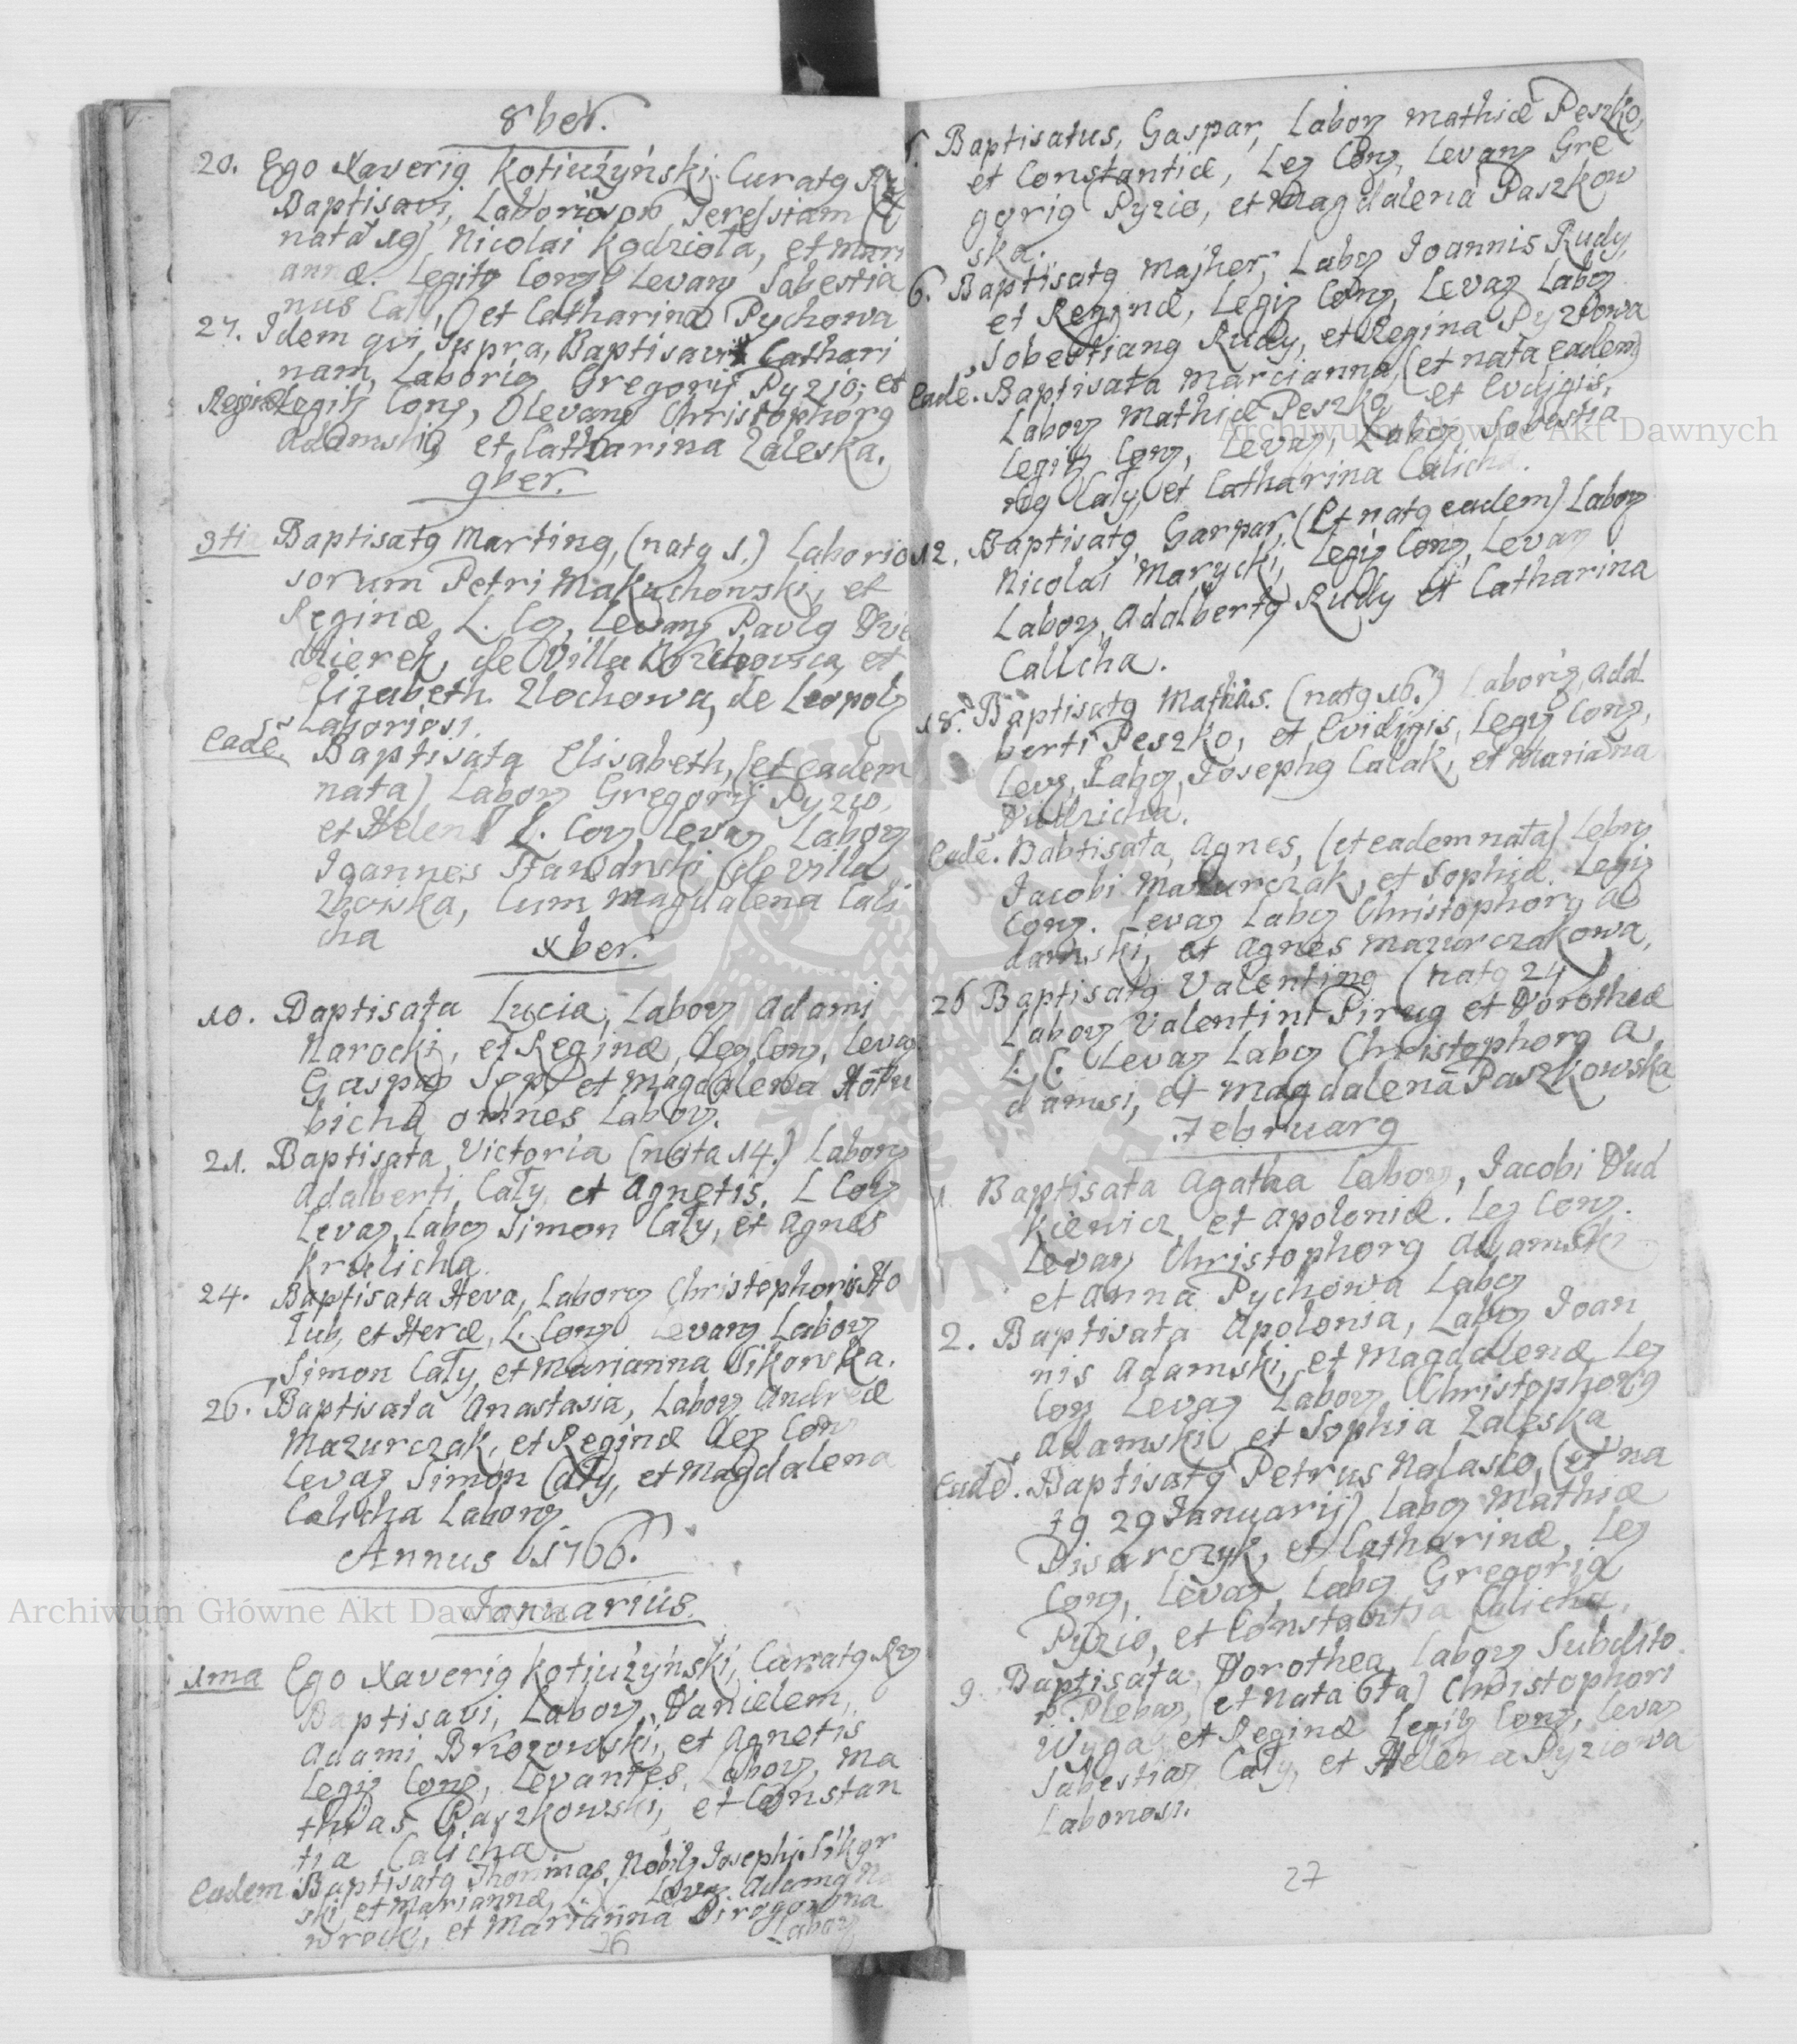 8ber.
20. Ego Xaverig Kotiużyński Curatg
Baptisavi, Laboriosor Teressiam
nata 19, Nicolai Kądzioła, et Mari
annæ. Legitg Conz Levanz Sabestia
nus Cały, et Catharina Pychowa
27. Idem qui supra, Baptisavi Cathari
nam, Laborig Gregorij Pyzio, et
Reginæ Legitz Conz, Levanz Christophorg
Adamski, et Catharina Zaleska.
9ber.
3tia Baptisatg Marting, (natg 1.) Laborio
sorum Petri Makuchowski, et
Reginæ L. Co, Levanz Paulg
de Villa et
Elizabeth Zlochowa, de Leopolz
Laboriosi.
Eadē Baptisata Elisabeth, (et eadem
nata) Laborz Gregorij Pyzio,
et Helen L. Conz Levaz Laborz
Joannes de Villa
cum Magdalena Cali
cha
xber.
10. Baptisata Lucia, Laborz Adami
Narocki, et Reginæ, Leg Conz, Levaz
Gaspar et Magdalena Hołu
bicha omnes Laborz.
21. Baptisata Victoria (nata 14.) Laborz
Adalberti Cały et Agnetis. L Conz
Levaz, Laboz Simon Cały, et Agnes
Krolicha
24. Baptisata Heva, Laborz Christophori Ho
łub, et Hevæ, L. Conz Levanz Laborz
Simon Cały, et Marianna Sikorska.
26. Baptisata Anastasia, Laborz Andreæ
Mazurczak, et Reginæ Leg Con
Levaz Simon Cały, et Magdalena
Calicha Laborz
Annus 1766.
Januarius.
1ma Ego Xaverig Kotiużyński, Curatg
Baptisavi, Laborz Danielem,
Adami Brzozowski, et Agnetis
Legiz Conz, Levantes, Laborz, Ma
thias Paszkowski, et Constan
tia Calicha
Eadem Baptisatg Thommas, Nobilz Josephi Sikor
ski et Mariannæ, L. C. Levaz Adamg Na
wrocki, et Marianna Pirogowna
Laborz
26
5. Baptisatus, Gaspar, Laborz Mathiæ Peszko,
et Constantiæ, Leg Conz, Levanz Gre
gorig Pyzio, et Magdalena Paszkow
ska.
6. Baptisatg Majher, Labz Joannis Rudy,
et Reginæ, Legiz Conz, Levaz Laboz
Sobestiang Rudy, et Regina Pyziowa
Eadē. Baptisata Marcianna, (et nata eadem)
Laborz Mathiæ Peszko et Evdigis,
Legitz Conz, Levaz, Laboz Sobestia
ng Cały, et Catharina Calicha.
12. Baptisatg Garpar, (Et natg eadem) Laborz
Nicolai Marycki, Legiz Conz, Levan
Laborz, Adalbertg Rudy et Catharina
Calicha.
18. Baptisatg Mathias. (natg 16.) Laborz, Adal
berti Peszko, et Evidigis, Legiz Conz,
Levz, Labz, Josephg Calak, et Mariana
Dudzicha.
Eadē. Babtisata, Agnes, (et eadem nata) Lebrz
Jacobi Mazurczak, et Sophiæ. Legiz
Conz. Levaz Laboz Christophorg A
damski, et Agnes Mazurczakowa,
26 Baptisatg Valenting (natg 24)
Laborz Valentini Pirug et Dorotheæ
L. C. Levaz Laboz Christophorg A
damsi, et Magdalena Paszkowska
Februarg
1 Baptisata Agatha Laborz, Jacobi Dud
kiewicz, et Apoloniæ. Leg Conz.
Levanz Christophorg Adamski
et Anna Pychowa Laboz
2. Baptisata Apolonia, Laboz Joan
nis Adamski, et Magdalenæ Leg
Conz Levaz Laborz Christophorg
Adamski et Sophia Zaleska
Eadē. Baptisatg Petrus Nolasco, (et na
tg 29 Januarij) Laboz Mathiæ
Pisarczyk, et Catharinæ, Leg
Conz, Levaz, Laboz Gregorig
Pyzio, et Constantia Calicha,
9 Baptisata, Dorothea Laborz Subdito
r. Plebaz, (et Nata 6ta) Christophori
Wyga, et Reginæ Legitz Conz, Levaz
Sabestiaz Cały, et Helena Pyziowa
Laboriosi.
27
Archiwum Główne Akt Dawnych
Archiwum Główne Akt Dawnych